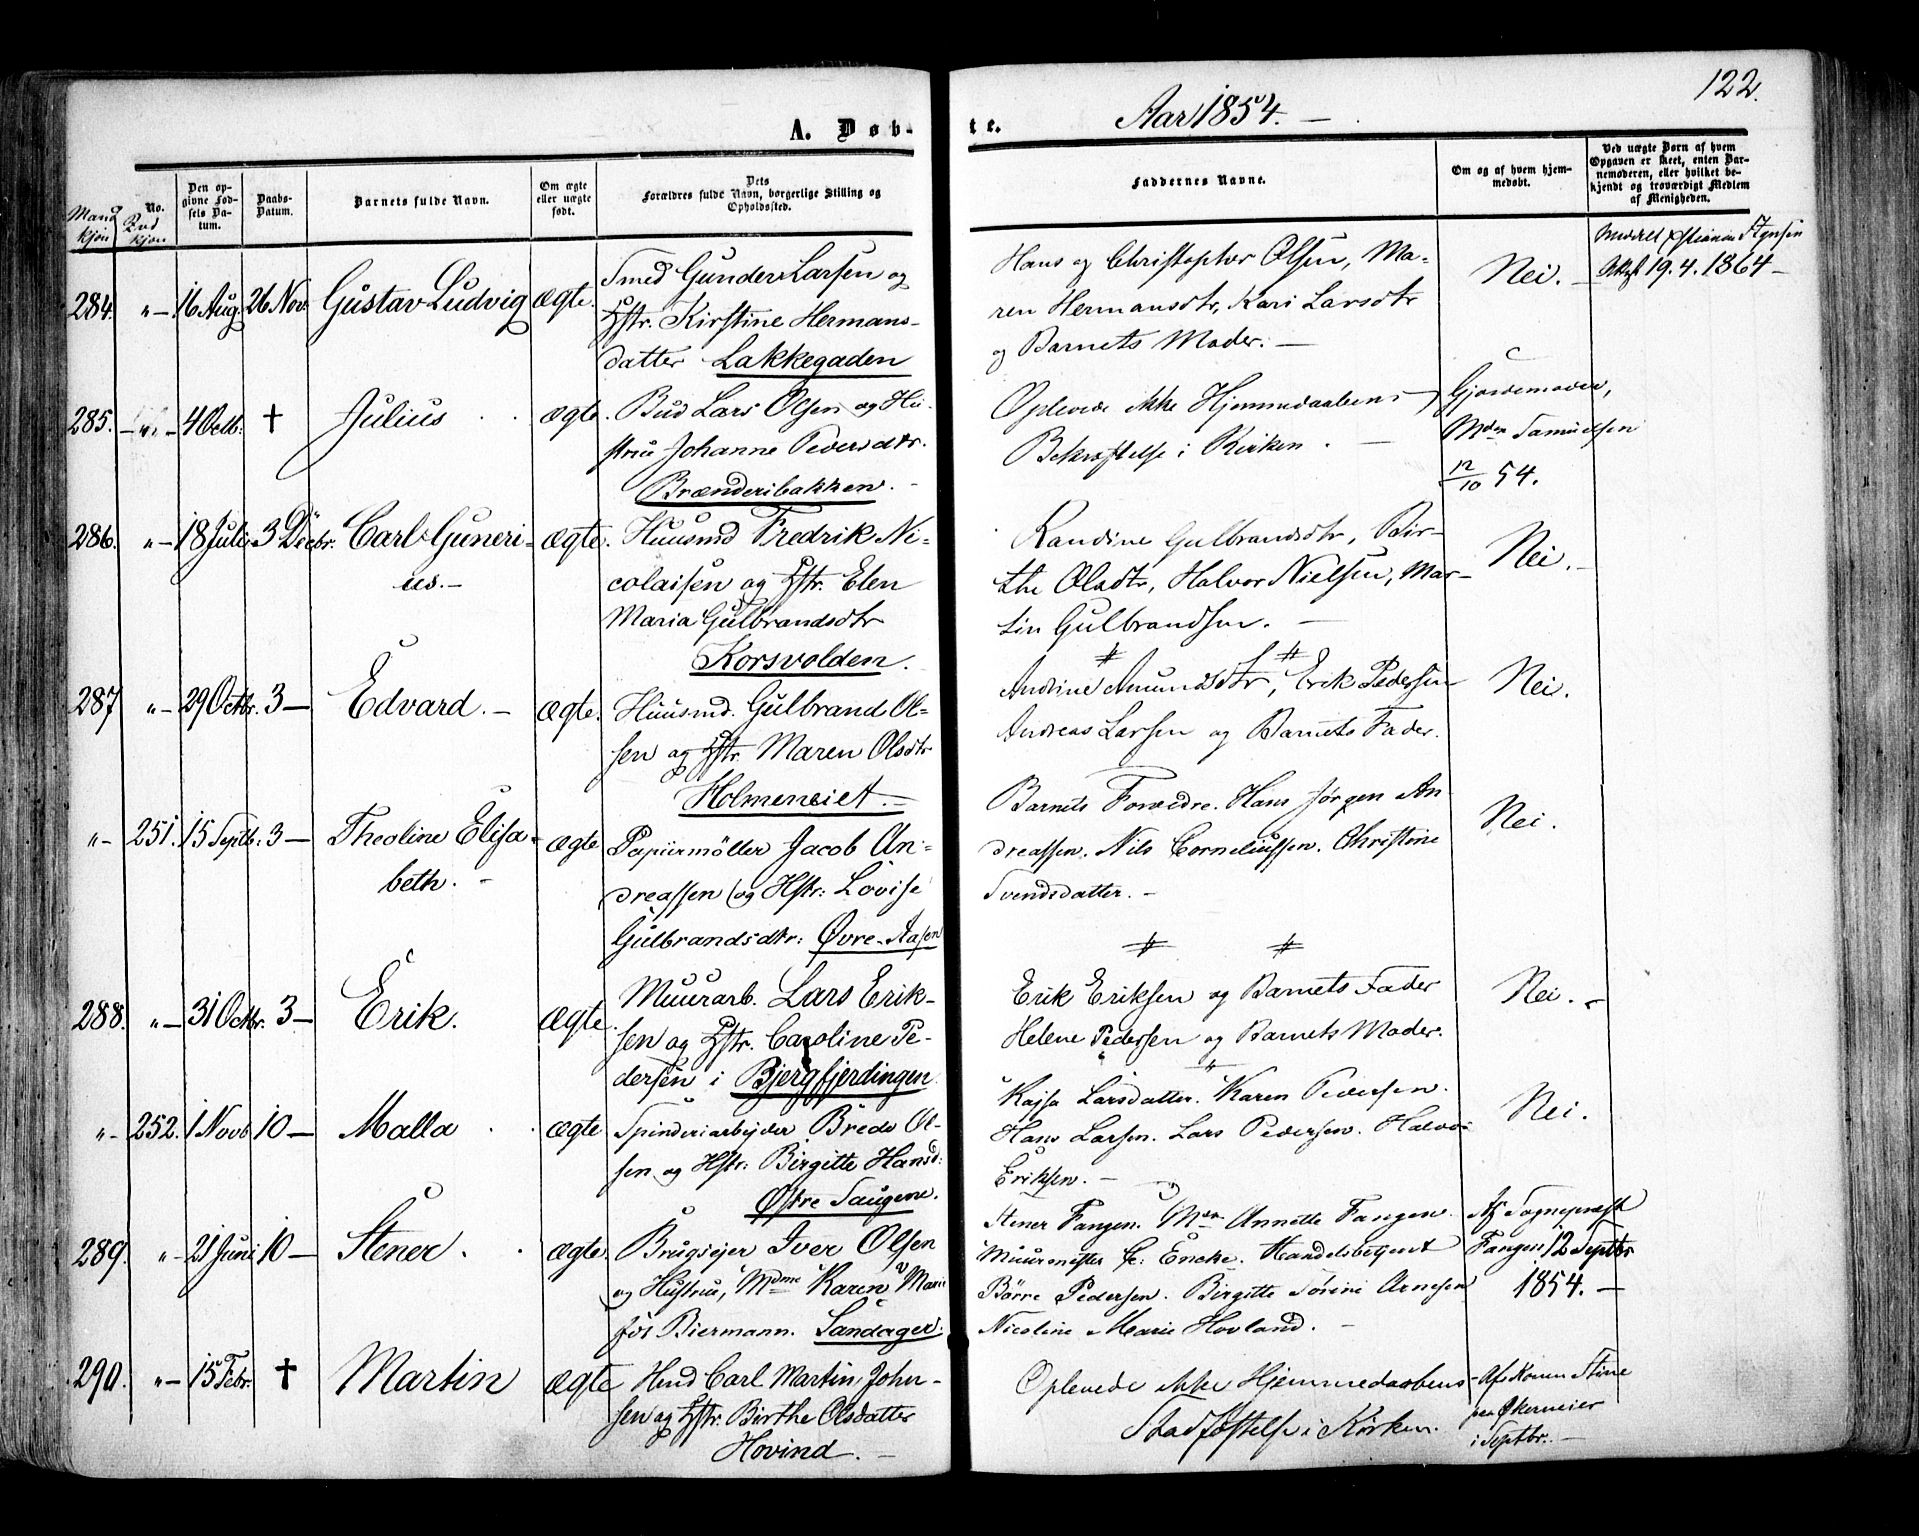 122.
Aar 1854. —
A. Døb-
te.
Mand
kjøn
No.
Qvd
kjøn
Den op-
givne Fød-
sels Da-
tum.
Daabs-
Datum.
Barnets fulde Navn.
Om ægte
eller uægte
født.
Dets
Forældres fulde Navn, borgerlige Stilling og
Opholdssted.
Faddernes Navne.
Om og af hvem hjem-
medøbt.
Ved uægte Børn af hvem
Opgaven er skeet, enten Bar-
nemoderen, eller hvilket be-
kjendt og troværdigt Medlem
af Menigheden.
284. „— 16 Aug. 26 Nov. Gustav Ludvig ægte.
Smed Gunder Larsen og
Hstr. Kirstine Hermans-
datter Lakkegaden
Hans og Christopher Olsen, Ma-
ren Hermansdtr, Kari Larsdtr
og Barnets Moder. —
Nei. —
Meddelt
19. 4. 1864 —
285. 4 Octb. † Julius ægte.
Bud Lars Olsen og Hu-
stru Johanne Pedersdtr.
Brænderibakken. -
Oplevede ikke Hjemmedaabens
Bekræftelse i Kirken. —
Gjordemoder,
Mdm Samuelsen
12/10 54.
286. „— 18 Juli 3 Decbr. Carl Guneri-
us. —
ægte.
Huusmd Fredrik Ni-
colaisen og Hstr. Elen
Maria Gulbrandsdtr
Korsvolden.
Randine Gulbrandsdtr, Bir-
the Olsdtr, Halvor Nielsen, Mar-
tin Gulbrandsen. —
Nei. -
287 „— 29 Octbr. 3 — Edvard. — ægte.
Huusmd. Gulbrand Ol-
sen og Hstr. Maren Olsdtr
Holmeneiet. —
Andrine Amundsdtr, Erik Pedersen
Andreas Larsen og Barnets Fader.
Nei.
„— 251. 15 Septb. 3 — Theoline Elisa-
beth. —
ægte
Papiirmöller Jacob An-
dreassen (og Hstr: Lovise
Gulbrandsdtr: Øvre-Aasen
Barnets Forældre. Hans Jørgen An
dreassen. Nils Corneliussen. Christine
Svendsdatter. —
Nei.
288. „— 31 Octbr. 3 — Erik. ægte.
Muurarb. Lars Erik-
sen og Hstr. Caroline Pe-
dersen i Bjergfjerdingen
Erik Eriksen og Barnets Fader
Helene Pedersen og Barnets Moder.
Nei. -
„- 252. 1 Novb 10 — Malla ægte
Spinderiarbejder Brede Ol-
sen og Hstr: Birgitte Hansd:
Østre Saugene.
Kajsa Larsdatter. Karen Pedersen.
Hans Larsen. Lars Pedersen. Halvor
Eriksen. —
Nei.
289. „- 21 Juni 10 — Stener. ægte.
Brugsejer Iver Olsen
og Hustru, Mdme Karen Marie
fös Biermann. Sandager.
Stener Fangen. Mdm Annette Fangen.
Muurmester C: Encke. Handelsbetjent
Börre Pedersen. Birgitte Sörine Arnesen
Nicoline Marie Hovland. —
Af Sognepræst
Fangen 12 Septbr
1854. —
290. „— 15 Febr. † Martin ægte
Hmd Carl Martin John-
sen og Hstr. Birthe Olsdatter
Hovind. —
Oplevede ikke Hjemmedaabens
Stadfæstelse i Kirken.
Af Konen Stine
paa Økerneier
i Septbr. —